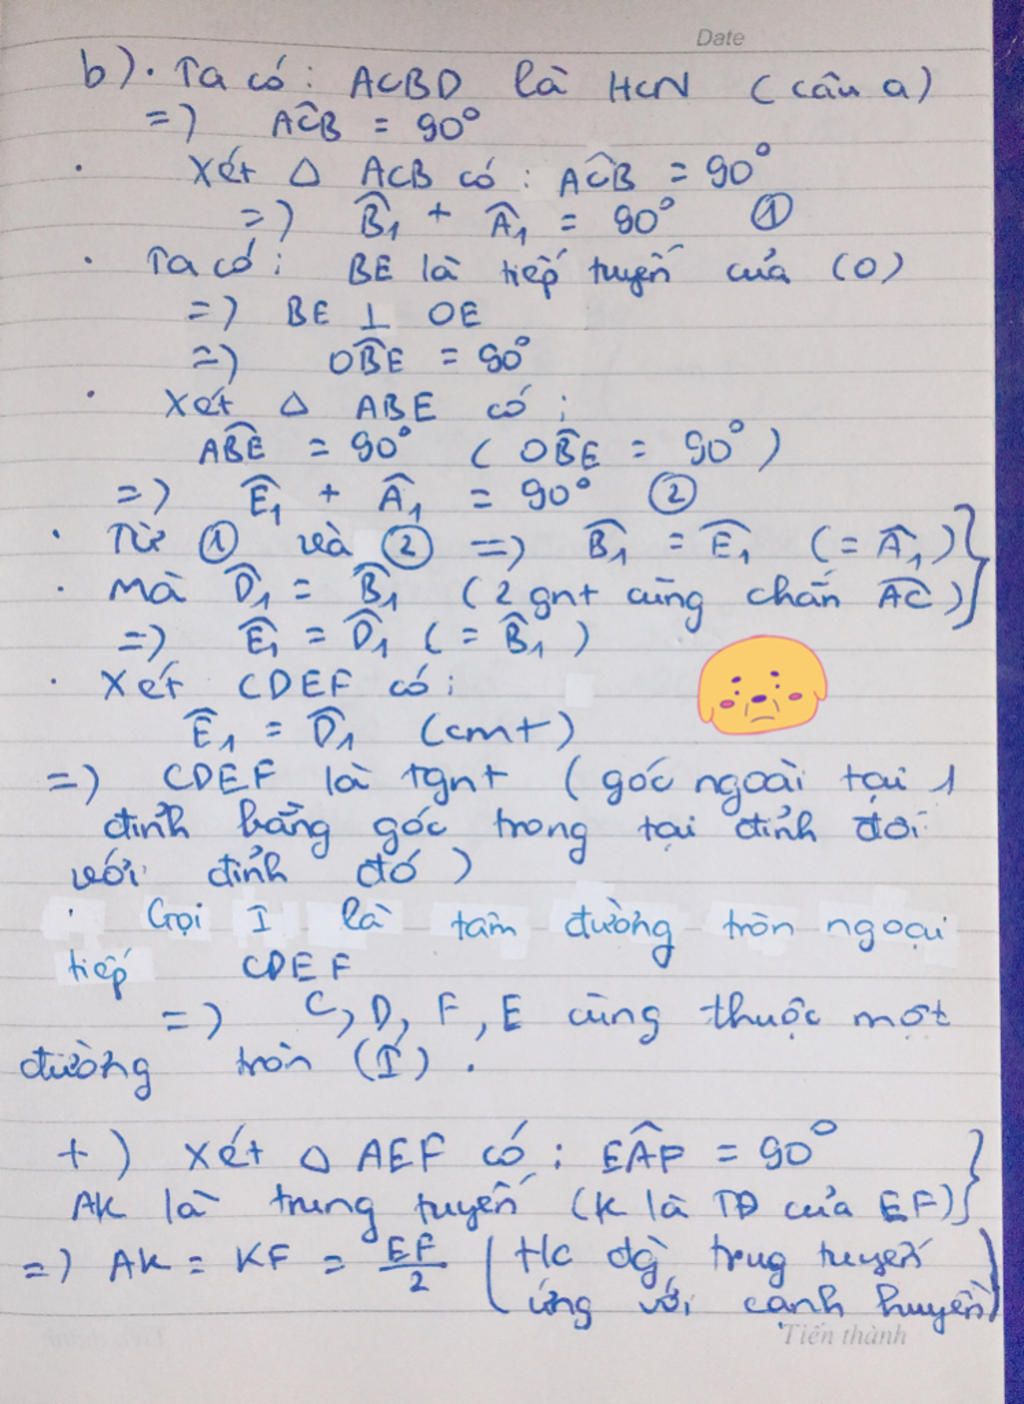 Date
b). Ta có: ACBD là HCN (câu a)
=> AĈB = 90°
. Xét △ ACB có: AĈB = 90°
=> B̂₁ + Â₁ = 90° ①
. Ta có: BE là tiếp tuyến của (O)
=> BE ⊥ OE
=> OB̂E = 90°
. Xét △ ABE có:
AB̂E = 90° (OB̂E = 90°)
=> Ê₁ + Â₁ = 90° ②
. Từ ① và ② => B̂₁ = Ê₁ (= Â₁)}
. Mà D̂₁ = B̂₁ (2 gnt cùng chắn AC͡)}
=> Ê₁ = D̂₁ (= B̂₁)
. Xét CDEF có:
Ê₁ = D̂₁ (cmt)
=> CDEF là tgnt (góc ngoài tại 1
đỉnh bằng góc trong tại đỉnh đối
với đỉnh đó)
. Gọi I là tâm đường tròn ngoại
tiếp CDEF
=> C, D, F, E cùng thuộc một
đường tròn (I).
+) Xét △ AEF có: EÂF = 90° }
AK là trung tuyến (K là TĐ của EF)}
=> AK = KF = EF/2 (t/c đg trug tuyến
ứng với cạnh huyền)
Tiến thành